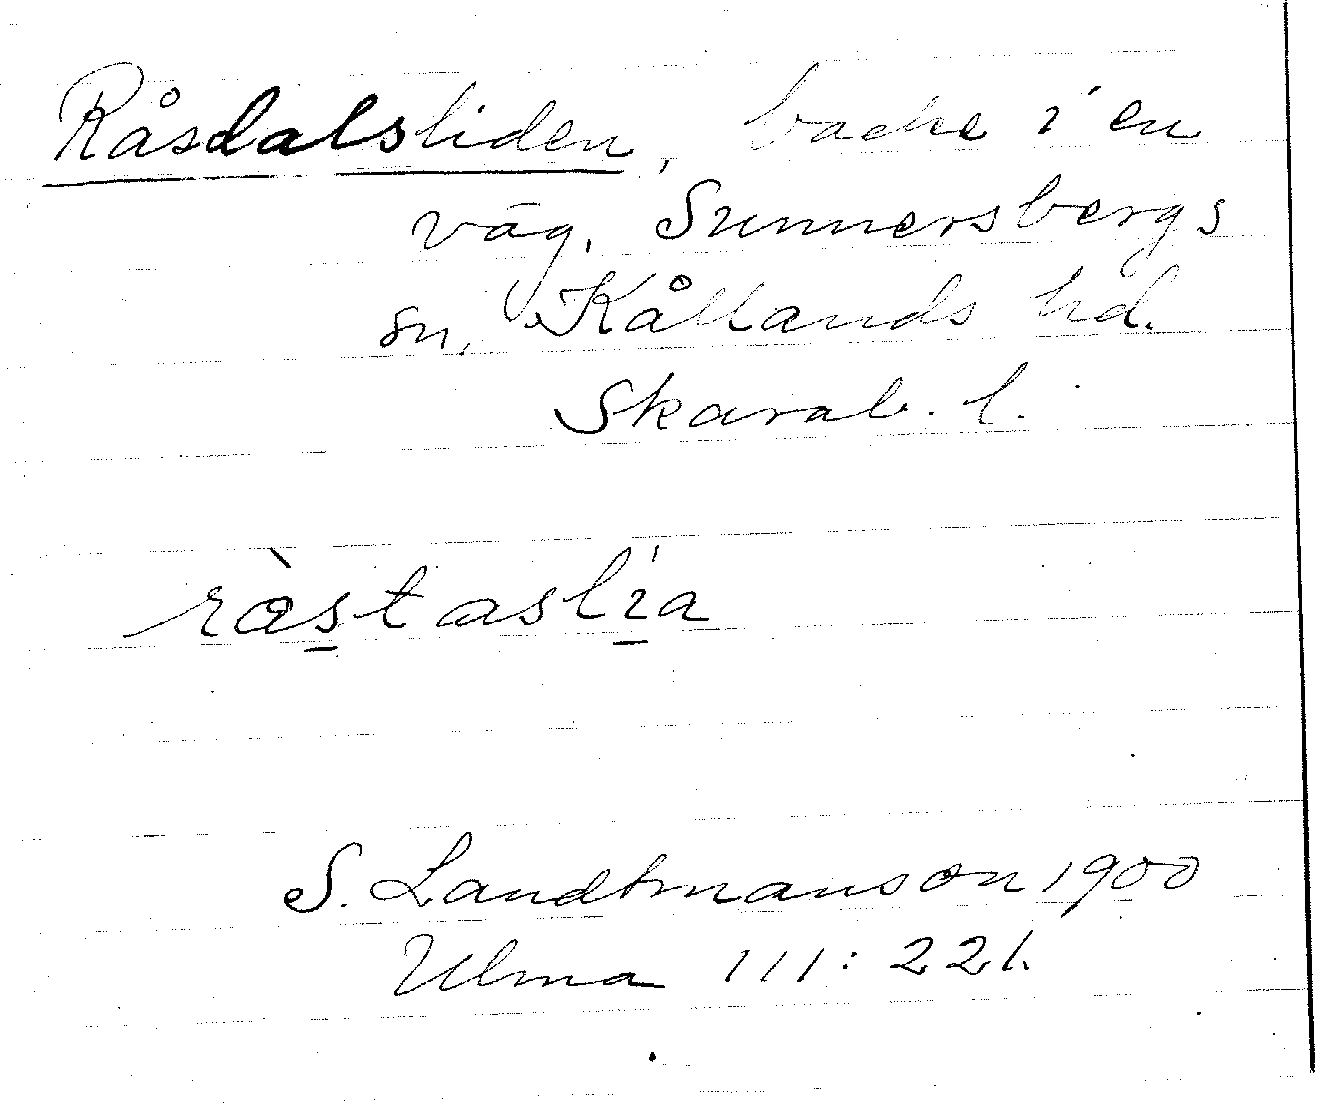 Råsdalsliden, backe i en
väg. Sunnersbergs
sn, Kållands hd.
Skarab. l.
ràs̲taslí̲a
S. Landtmanson 1900
Ulma 111:221.